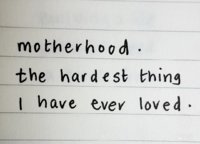 motherhood.
the hardest thing
I have ever loved.